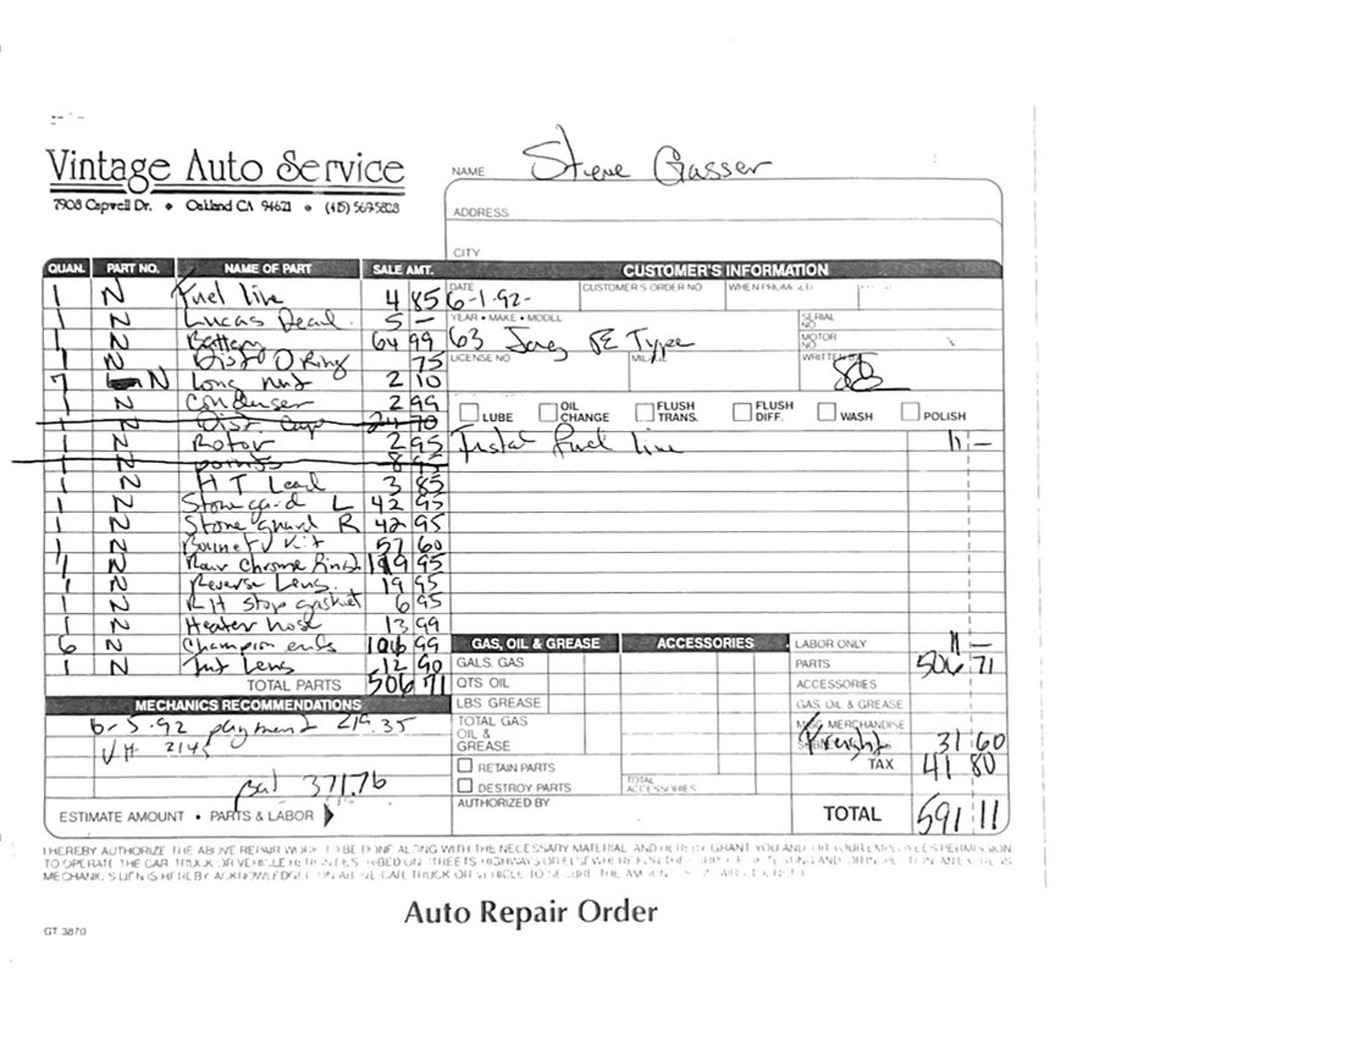 Vintage Auto Service
7908 Capwell Dr. • Oakland CA 94621 • (415) 569-5828
NAME Steve Gasser
ADDRESS
CITY
QUAN. PART NO. NAME OF PART SALE AMT. CUSTOMER'S INFORMATION
1 N Fuel line 4 85
DATE 6-1-92- CUSTOMER'S ORDER NO WHEN PROMISED
1 N Lucas 5 —
YEAR • MAKE • MODEL SERIAL NO
1 N Battery 64 99
63 Jag E Type MOTOR NO
1 N Dist O Ring 75
LICENSE NO WRITTEN BY
7 N Long nut 2 10
1 N Condenser 2 99
LUBE OIL CHANGE FLUSH TRANS. FLUSH DIFF. WASH POLISH
1 N Dist. Cap 24 70
1 N Rotor 2 95 Instal fuel line 11 —
1 N points 8 95
1 N HT Lead 3 85
1 N Stonegard L 42 95
1 N Stone guard R 42 95
1 N Bonnet kit 57 60
1 N Rear Chrome 95
1 N Reverse Lens. 19 95
1 N RH stop gasket 6 95
1 N Heater hose 13 99
6 N Champion ends 106 99 GAS, OIL & GREASE ACCESSORIES LABOR ONLY 11 —
1 N Lens 12 90 GALS. GAS PARTS 506 71
TOTAL PARTS 506 71 QTS OIL ACCESSORIES
MECHANICS RECOMMENDATIONS LBS GREASE GAS, OIL & GREASE
6-5-92 payment 219.35 TOTAL GAS OIL & GREASE MISC MERCHANDISE
2145 Freight 31 60
RETAIN PARTS TAX 41 80
Bal 371.76 DESTROY PARTS TOTAL ACCESSORIES
ESTIMATE AMOUNT • PARTS & LABOR AUTHORIZED BY TOTAL 591 11
I HEREBY AUTHORIZE THE ABOVE REPAIR WORK TO BE DONE ALONG WITH THE NECESSARY MATERIAL AND HEREBY GRANT YOU AND OR YOUR EMPLOYEES PERMISSION
TO OPERATE THE CAR TRUCK OR VEHICLE
MECHANIC'S LIEN IS HEREBY ACKNOWLEDGED ON ABOVE CAR, TRUCK OR VEHICLE TO SECURE THE AMOUNT
Auto Repair Order
GT 3870